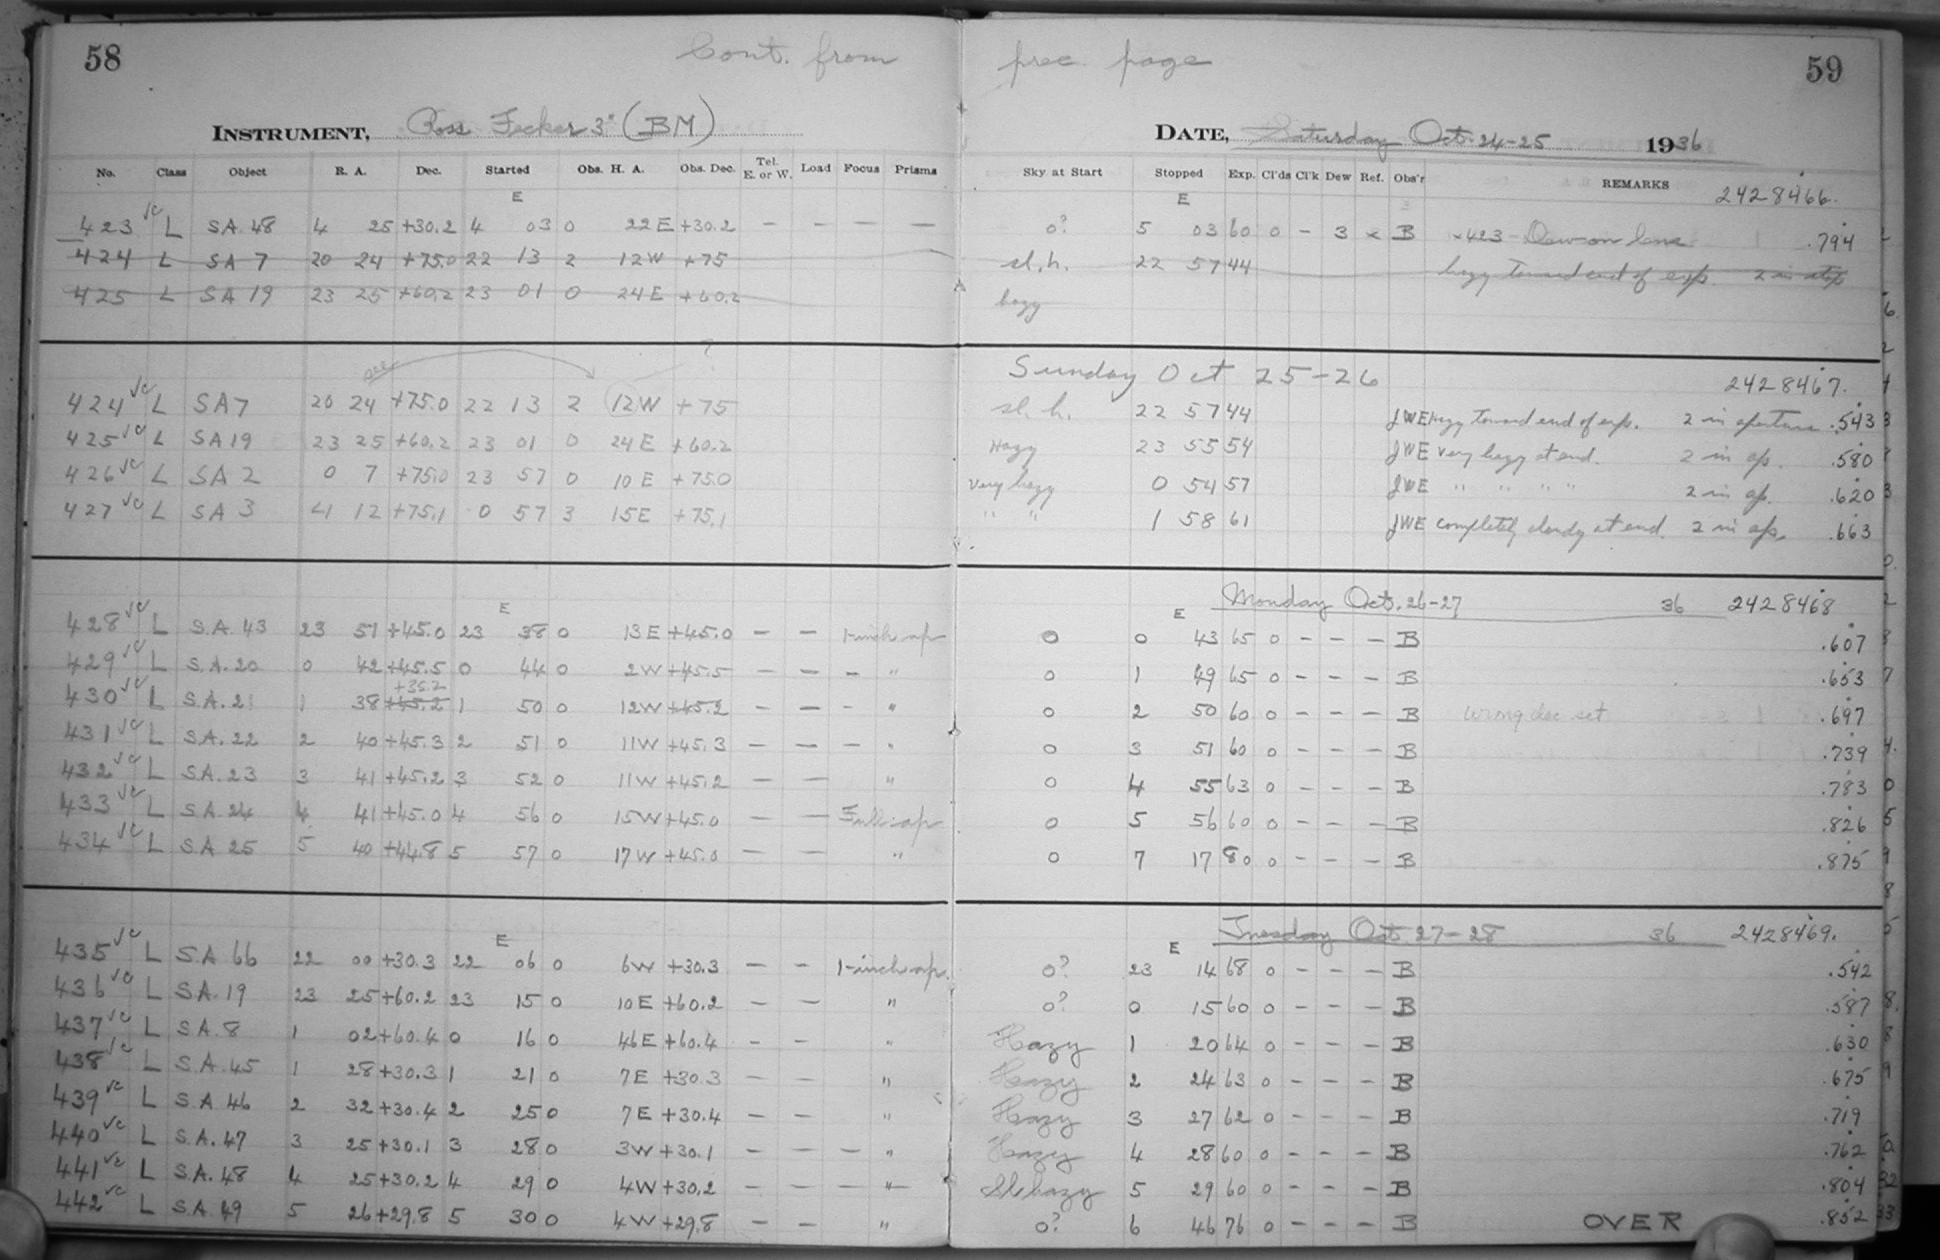 58 Cont. from prec. page 59
INSTRUMENT, Ross Fecker 3" (BM) DATE, Saturday Oct. 24-25 1936
No. Class Object R. A. Dec. Started Obs. H. A. Obs. Dec. Tel. E. or W. Load Focus Prisms Sky at Start Stopped Exp. Cl'ds Cl'k Dew Ref. Obs'r REMARKS 2428466.
E E
423 vc L SA 48 4 25 +30.2 4 03 0 22 E +30.2 — — — — 0? 5 03 60 0 — 3 x B x423 - Dew on lens .794
424 L SA 7 20 24 +75.0 22 13 2 12W +75 sl. h. 22 57 44 hazy toward end of exp. 2 in stop
425 L SA 19 23 25 +60.2 23 01 0 24E +60.2 hazy
Sunday Oct 25-26 2428467.
424 vc L SA7 20 24 +75.0 22 13 2 12W +75 sl. h. 22 57 44 JWE hazy toward end of exp. 2 in aperture .543
425 vc L SA19 23 25 +60.2 23 01 0 24 E +60.2 Hazy 23 55 54 JWE very hazy at end. 2 in ap. .580
426 vc L SA 2 0 7 +75.0 23 57 0 10 E +75.0 Very hazy 0 54 57 JWE " " " " 2 in ap. .620
427 vc L SA 3 12 +75.1 0 57 3 15E +75.1 " " 1 58 61 JWE completely cloudy at end. 2 in ap. .663
Monday Oct. 26-27 36 2428468
E E
428 vc L S.A. 43 23 51 +45.0 23 38 0 13 E +45.0 — — 1-inch ap 0 0 43 65 0 — — — B .607
429 vc L S.A. 20 0 42 +45.5 0 44 0 2W +45.5 — — — " 0 1 49 65 0 — — — B .653
+35.2
430 vc L S.A. 21 1 38 +45.2 1 50 0 12W +45.2 — — — " 0 2 50 60 0 — — — B wrong dec set .697
431 vc L S.A. 22 2 40 +45.3 2 51 0 11W +45.3 — — — " 0 3 51 60 0 — — — B .739
432 vc L S.A. 23 3 41 +45.2 3 52 0 11W +45.2 — — " 0 4 55 63 0 — — — B .783
433 vc L S.A. 24 4 41 +45.0 4 56 0 15W +45.0 — — Full ap 0 5 56 60 0 — — — B .826
434 vc L S.A. 25 5 40 +44.8 5 57 0 17W +45.0 — — " 0 7 17 80 0 — — — B .875
Tuesday Oct. 27-28 36 2428469.
E E
435 vc L S.A. 66 22 00 +30.3 22 06 0 6W +30.3 — — 1-inch ap. 0? 23 14 68 0 — — — B .542
436 vc L S.A. 19 23 25 +60.2 23 15 0 10E +60.2 — — " 0? 0 15 60 0 — — — B .587
437 vc L S.A. 8 1 02 +60.4 0 16 0 46E +60.4 — — " Hazy 1 20 64 0 — — — B .630
438 vc L S.A. 45 1 28 +30.3 1 21 0 7E +30.3 — — " Hazy 2 24 63 0 — — — B .675
439 vc L S.A. 46 2 32 +30.4 2 25 0 7E +30.4 — — " Hazy 3 27 62 0 — — — B .719
440 vc L S.A. 47 3 25 +30.1 3 28 0 3W +30.1 — — — " Hazy 4 28 60 0 — — — B .762
441 vc L S.A. 48 4 25 +30.2 4 29 0 4W +30.2 — — — " Sl. hazy 5 29 60 0 — — — B .804
442 vc L S.A. 49 5 26 +29.8 5 30 0 4W +29.8 — — " 0? 6 46 76 0 — — — B OVER .852